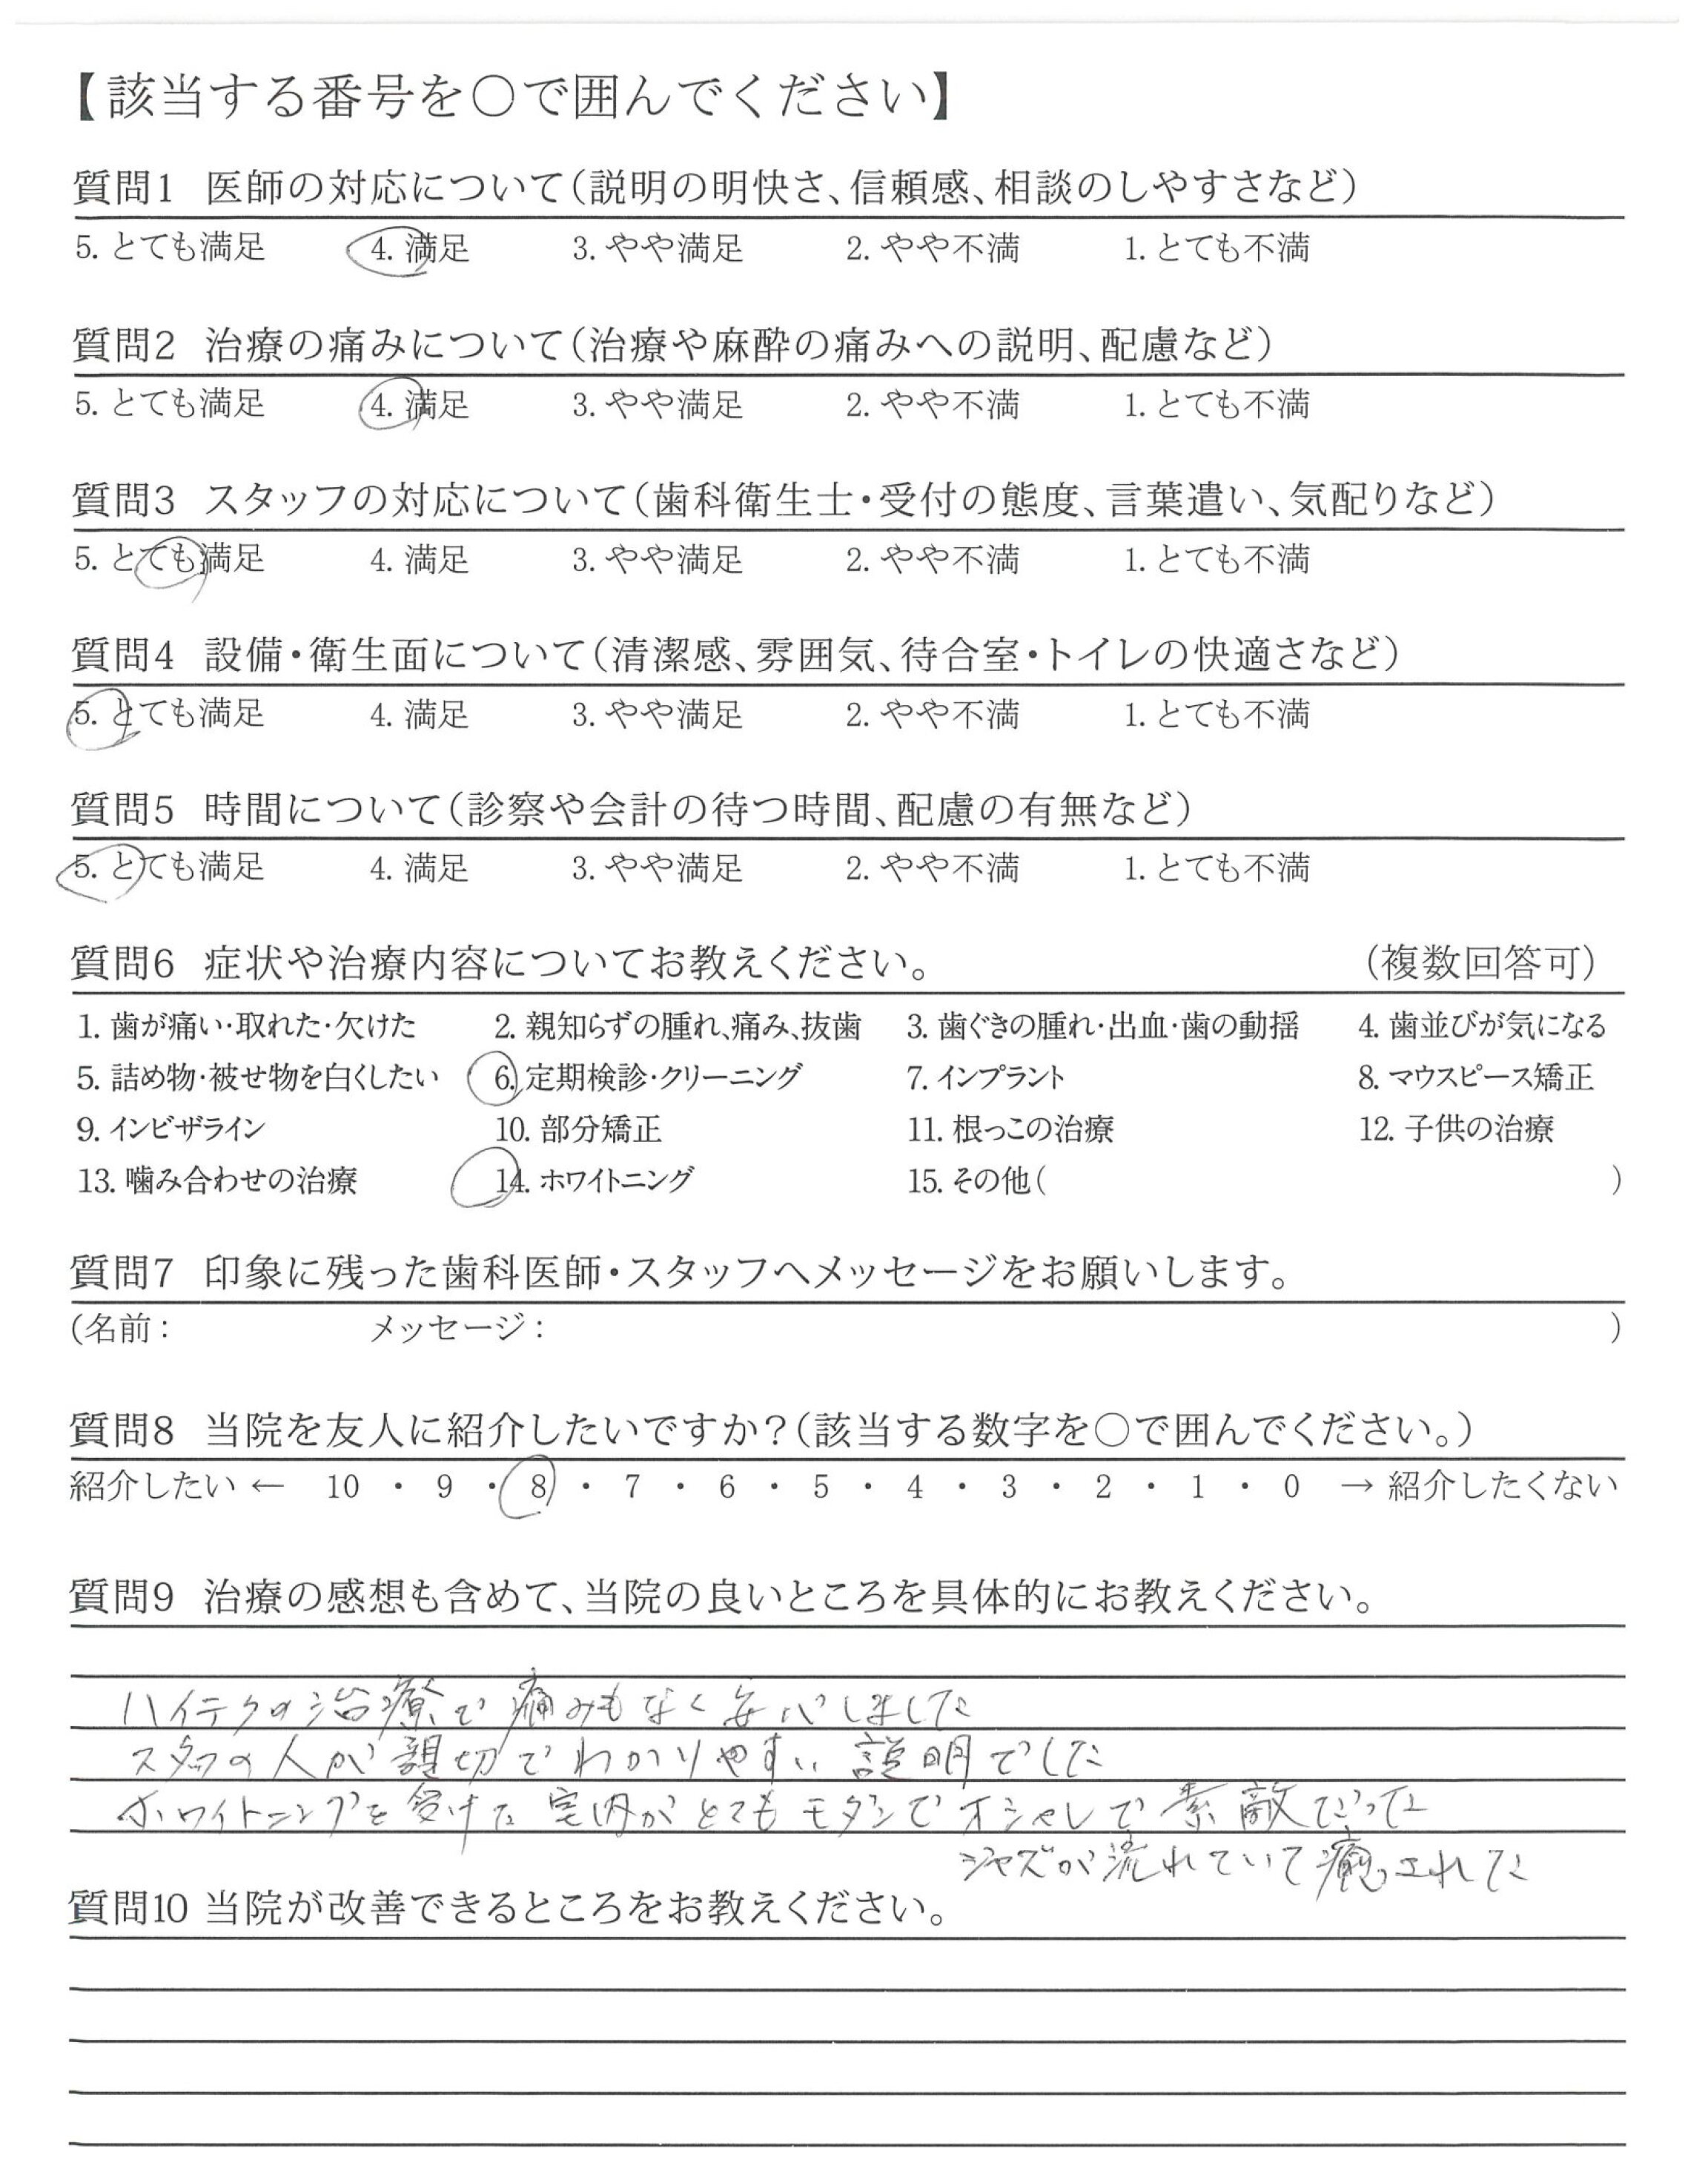 【該当する番号を○で囲んでください】
質問1 医師の対応について(説明の明快さ、信頼感、相談のしやすさなど)
5. とても満足 4. 満足 3. やや満足 2. やや不満 1. とても不満
質問2 治療の痛みについて(治療や麻酔の痛みへの説明、配慮など)
5. とても満足 4. 満足 3. やや満足 2. やや不満 1. とても不満
質問3 スタッフの対応について(歯科衛生士・受付の態度、言葉遣い、気配りなど)
5. とても満足 4. 満足 3. やや満足 2. やや不満 1. とても不満
質問4 設備・衛生面について(清潔感、雰囲気、待合室・トイレの快適さなど)
5. とても満足 4. 満足 3. やや満足 2. やや不満 1. とても不満
質問5 時間について(診察や会計の待つ時間、配慮の有無など)
5. とても満足 4. 満足 3. やや満足 2. やや不満 1. とても不満
質問6 症状や治療内容についてお教えください。 (複数回答可)
1. 歯が痛い・取れた・欠けた 2. 親知らずの腫れ、痛み、抜歯 3. 歯ぐきの腫れ・出血・歯の動揺 4. 歯並びが気になる
5. 詰め物・被せ物を白くしたい 6. 定期検診・クリーニング 7. インプラント 8. マウスピース矯正
9. インビザライン 10. 部分矯正 11. 根っこの治療 12. 子供の治療
13. 噛み合わせの治療 14. ホワイトニング 15. その他( )
質問7 印象に残った歯科医師・スタッフへメッセージをお願いします。
(名前: メッセージ: )
質問8 当院を友人に紹介したいですか?(該当する数字を○で囲んでください。)
紹介したい ← 10 ・ 9 ・ 8 ・ 7 ・ 6 ・ 5 ・ 4 ・ 3 ・ 2 ・ 1 ・ 0 → 紹介したくない
質問9 治療の感想も含めて、当院の良いところを具体的にお教えください。
ハイテクの治療で痛みもなく安心しました
スタッフの人が親切でわかりやすい説明でした
ホワイトニングを受けた室内がとてもモダンでオシャレで素敵だった
ジャズが流れていて癒された
質問10 当院が改善できるところをお教えください。